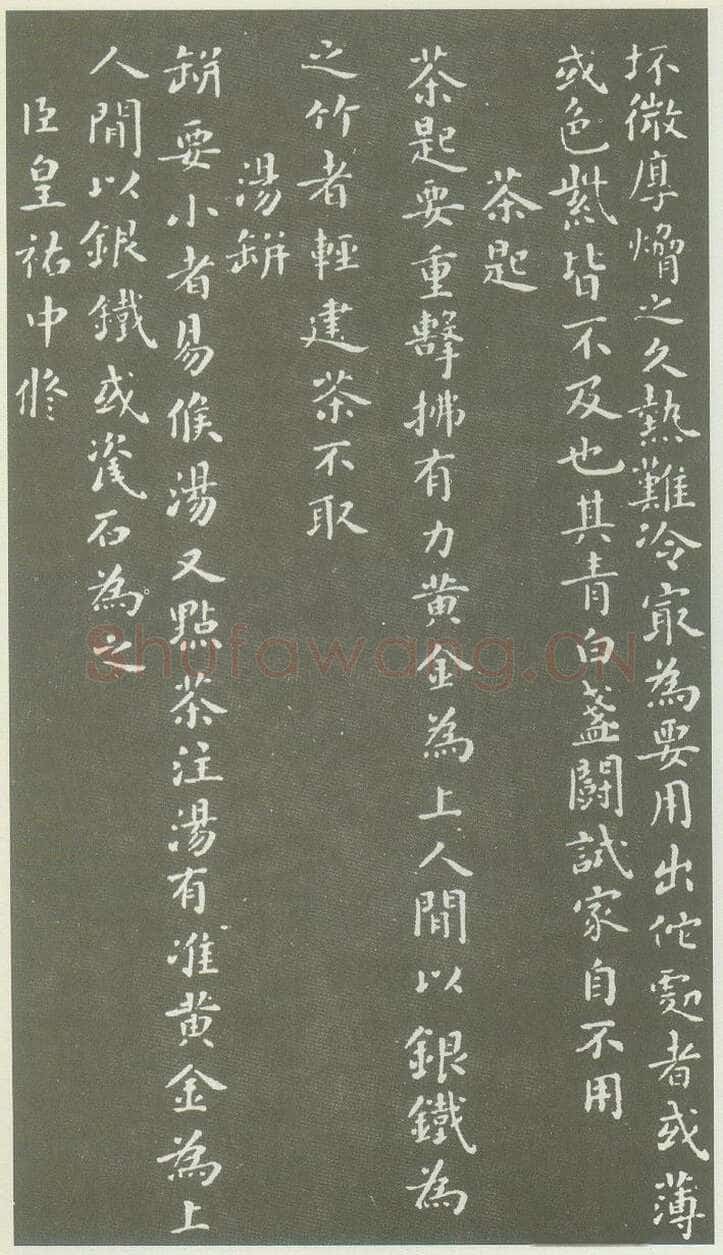 坏微厚熁之久熱難冷㝡為要用出佗處者或薄
或色紫皆不及也其青白盞鬬試家自不用
茶匙
茶匙要重擊拂有力黃金為上人間以銀鐵為
之竹者輕建茶不取
湯缾
缾要小者易候湯又點茶注湯有准黃金為上
人間以銀鐵或瓷石為之
臣皇祐中脩
Shufawang.CN